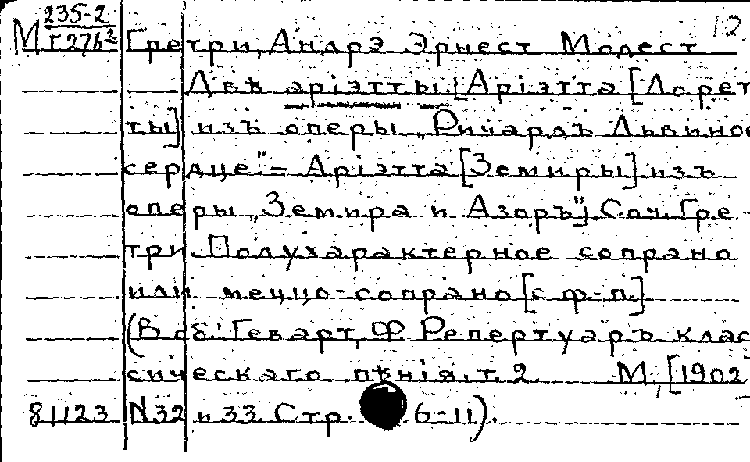 235-2 12
М Г 276² Гретри, Андрэ Эрнест Модест
Двѣ аріэтты [Аріэтта [Лорет
ты] изъ оперы „Ричардъ Львиное
сердце" – Аріэтта [Земиры] изъ
оперы „Земира и Азоръ"]. Соч. Гре-
три. Полухарактерное сопрано
или меццо-сопрано [с ф-п.]
(В сб: Геварт, Ф. Репертуаръ клас
сическаго пѣнія. т. 2 М., [1902
81123 N32 и 33. Стр. 6-11).